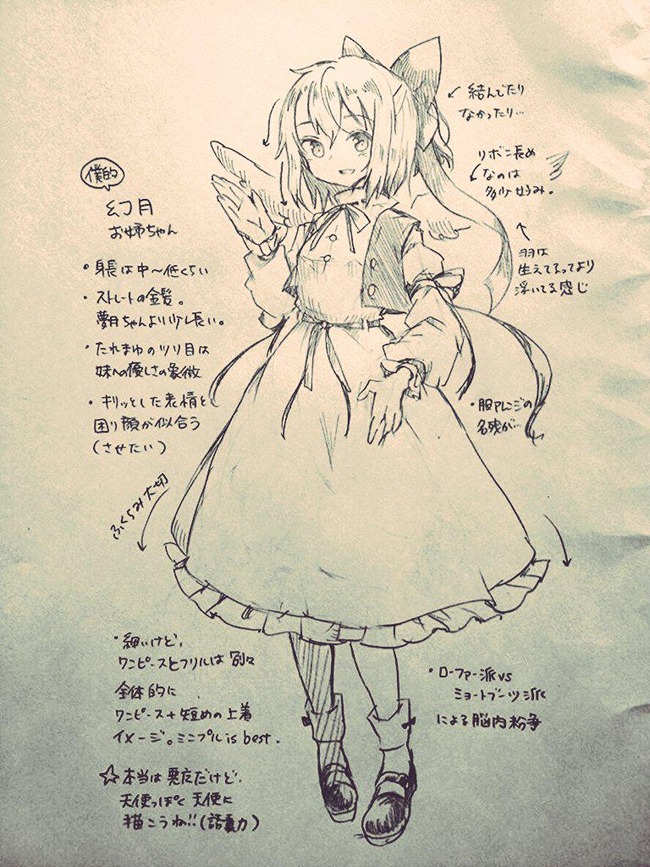 僕的
幻月
お姉ちゃん
・身長は中〜低くらい
・ストレートの金髪。
夢月ちゃんより少し長い。
・たれまゆのツリ目は
妹への優しさの象徴
・キリッとした表情と
困り顔が似合う
(させたい)
ふくらみ大切
・細いけど、
ワンピースとフリルは別々
全体的に
ワンピース+短めの上着
イメージ。ミニプル is best.
☆本当は悪魔だけど、
天使っぽく天使に
描こうね!!(語彙力)
結んでたり
なかったり…
リボン長め
なのは
多少好み。
羽は
生えてるってより
浮いてる感じ
・服アレンジの
名残が…
・ローファー派vs
ショートブーツ派
による脳内紛争